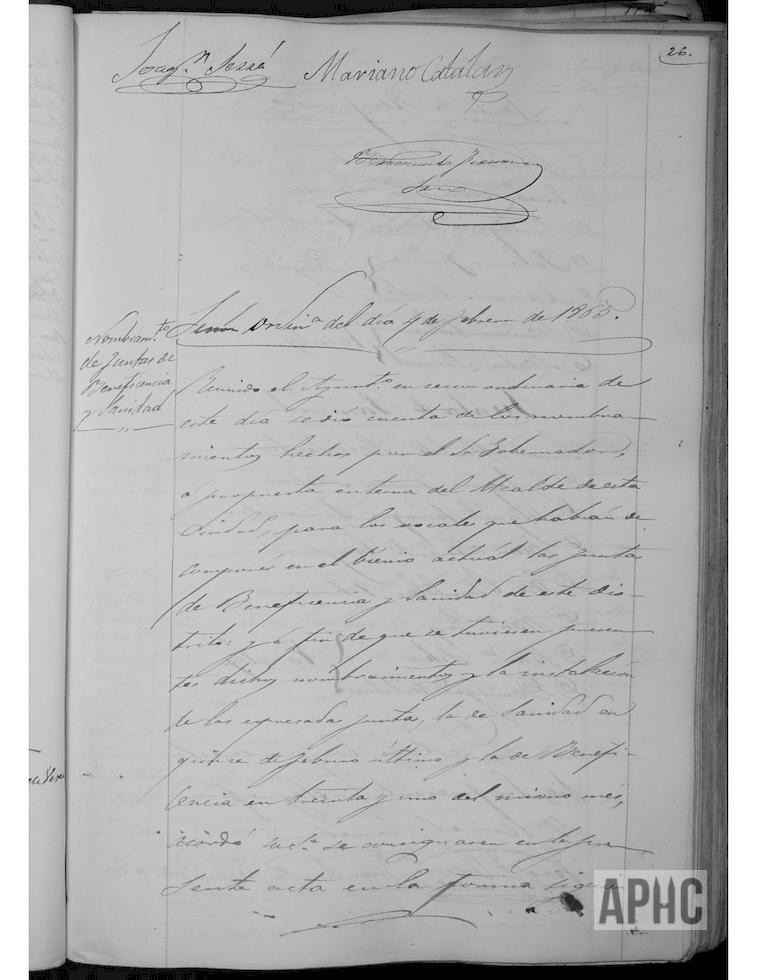 26.
Joaqn. Sessé Mariano Catalan
Sesion Ordina. del dia 4 de febrero de 1865.
Nombramtos.
de Juntas de
Beneficencia
y Sanidad
Reunido el Ayuntto. en sesion ordinaria de
este dia se dió cuenta de los nombra-
mientos hechos por el Sr. Gobernador,
á propuesta en terna del Alcalde de esta
Ciudad, para los vocales que habian de
componer en el bienio actuál las juntas
de Beneficencia y Sanidad de este dis-
trito: y á fin de que se tuviesen presen-
tes dichos nombramientos y la instalación
de las espresadas juntas, la de Sanidad en
quince de febrero último y la de Benefi-
cencia en treinta y uno del mismo més,
acordó se consignasen en la pre
sente acta en la forma sigui
APHC